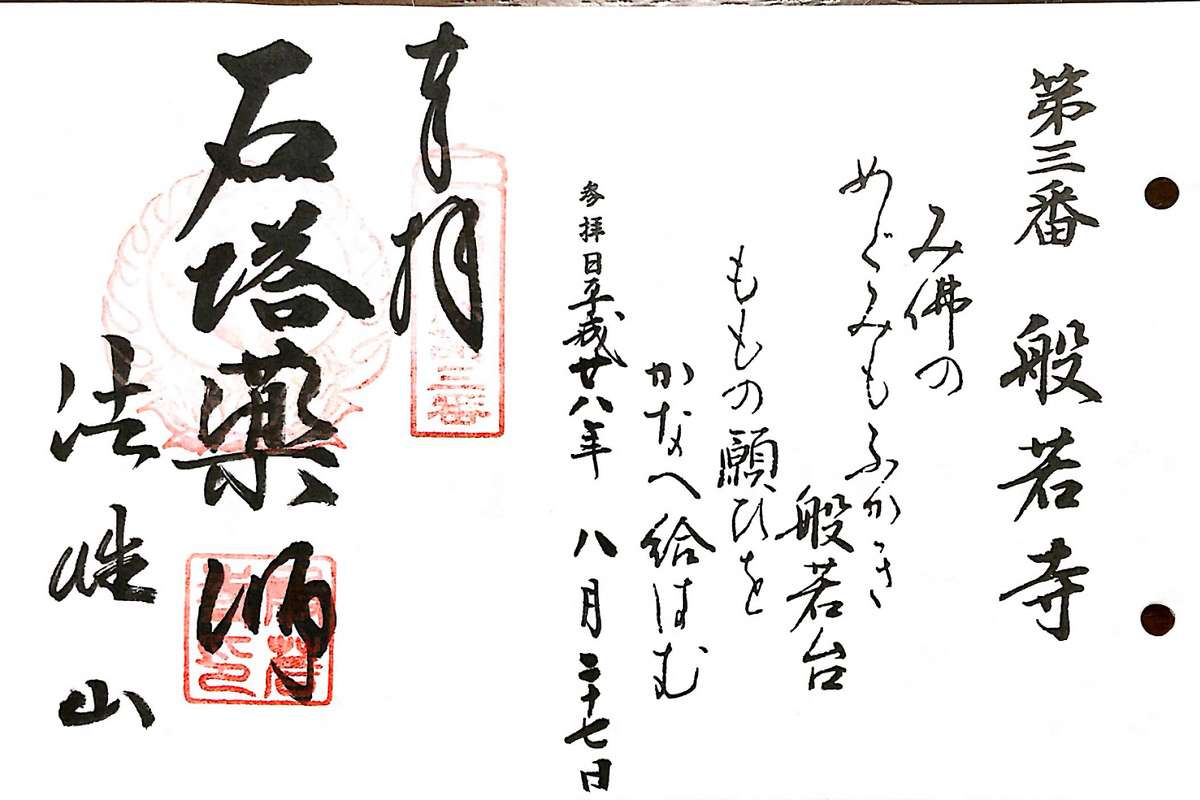 第三番 般若寺
み佛の
めぐみもふかき
般若台
ももの願ひを
かなへ給はむ
参拝日平成廿八年 八月二十七日
奉拝
三番
石塔薬師
法性山